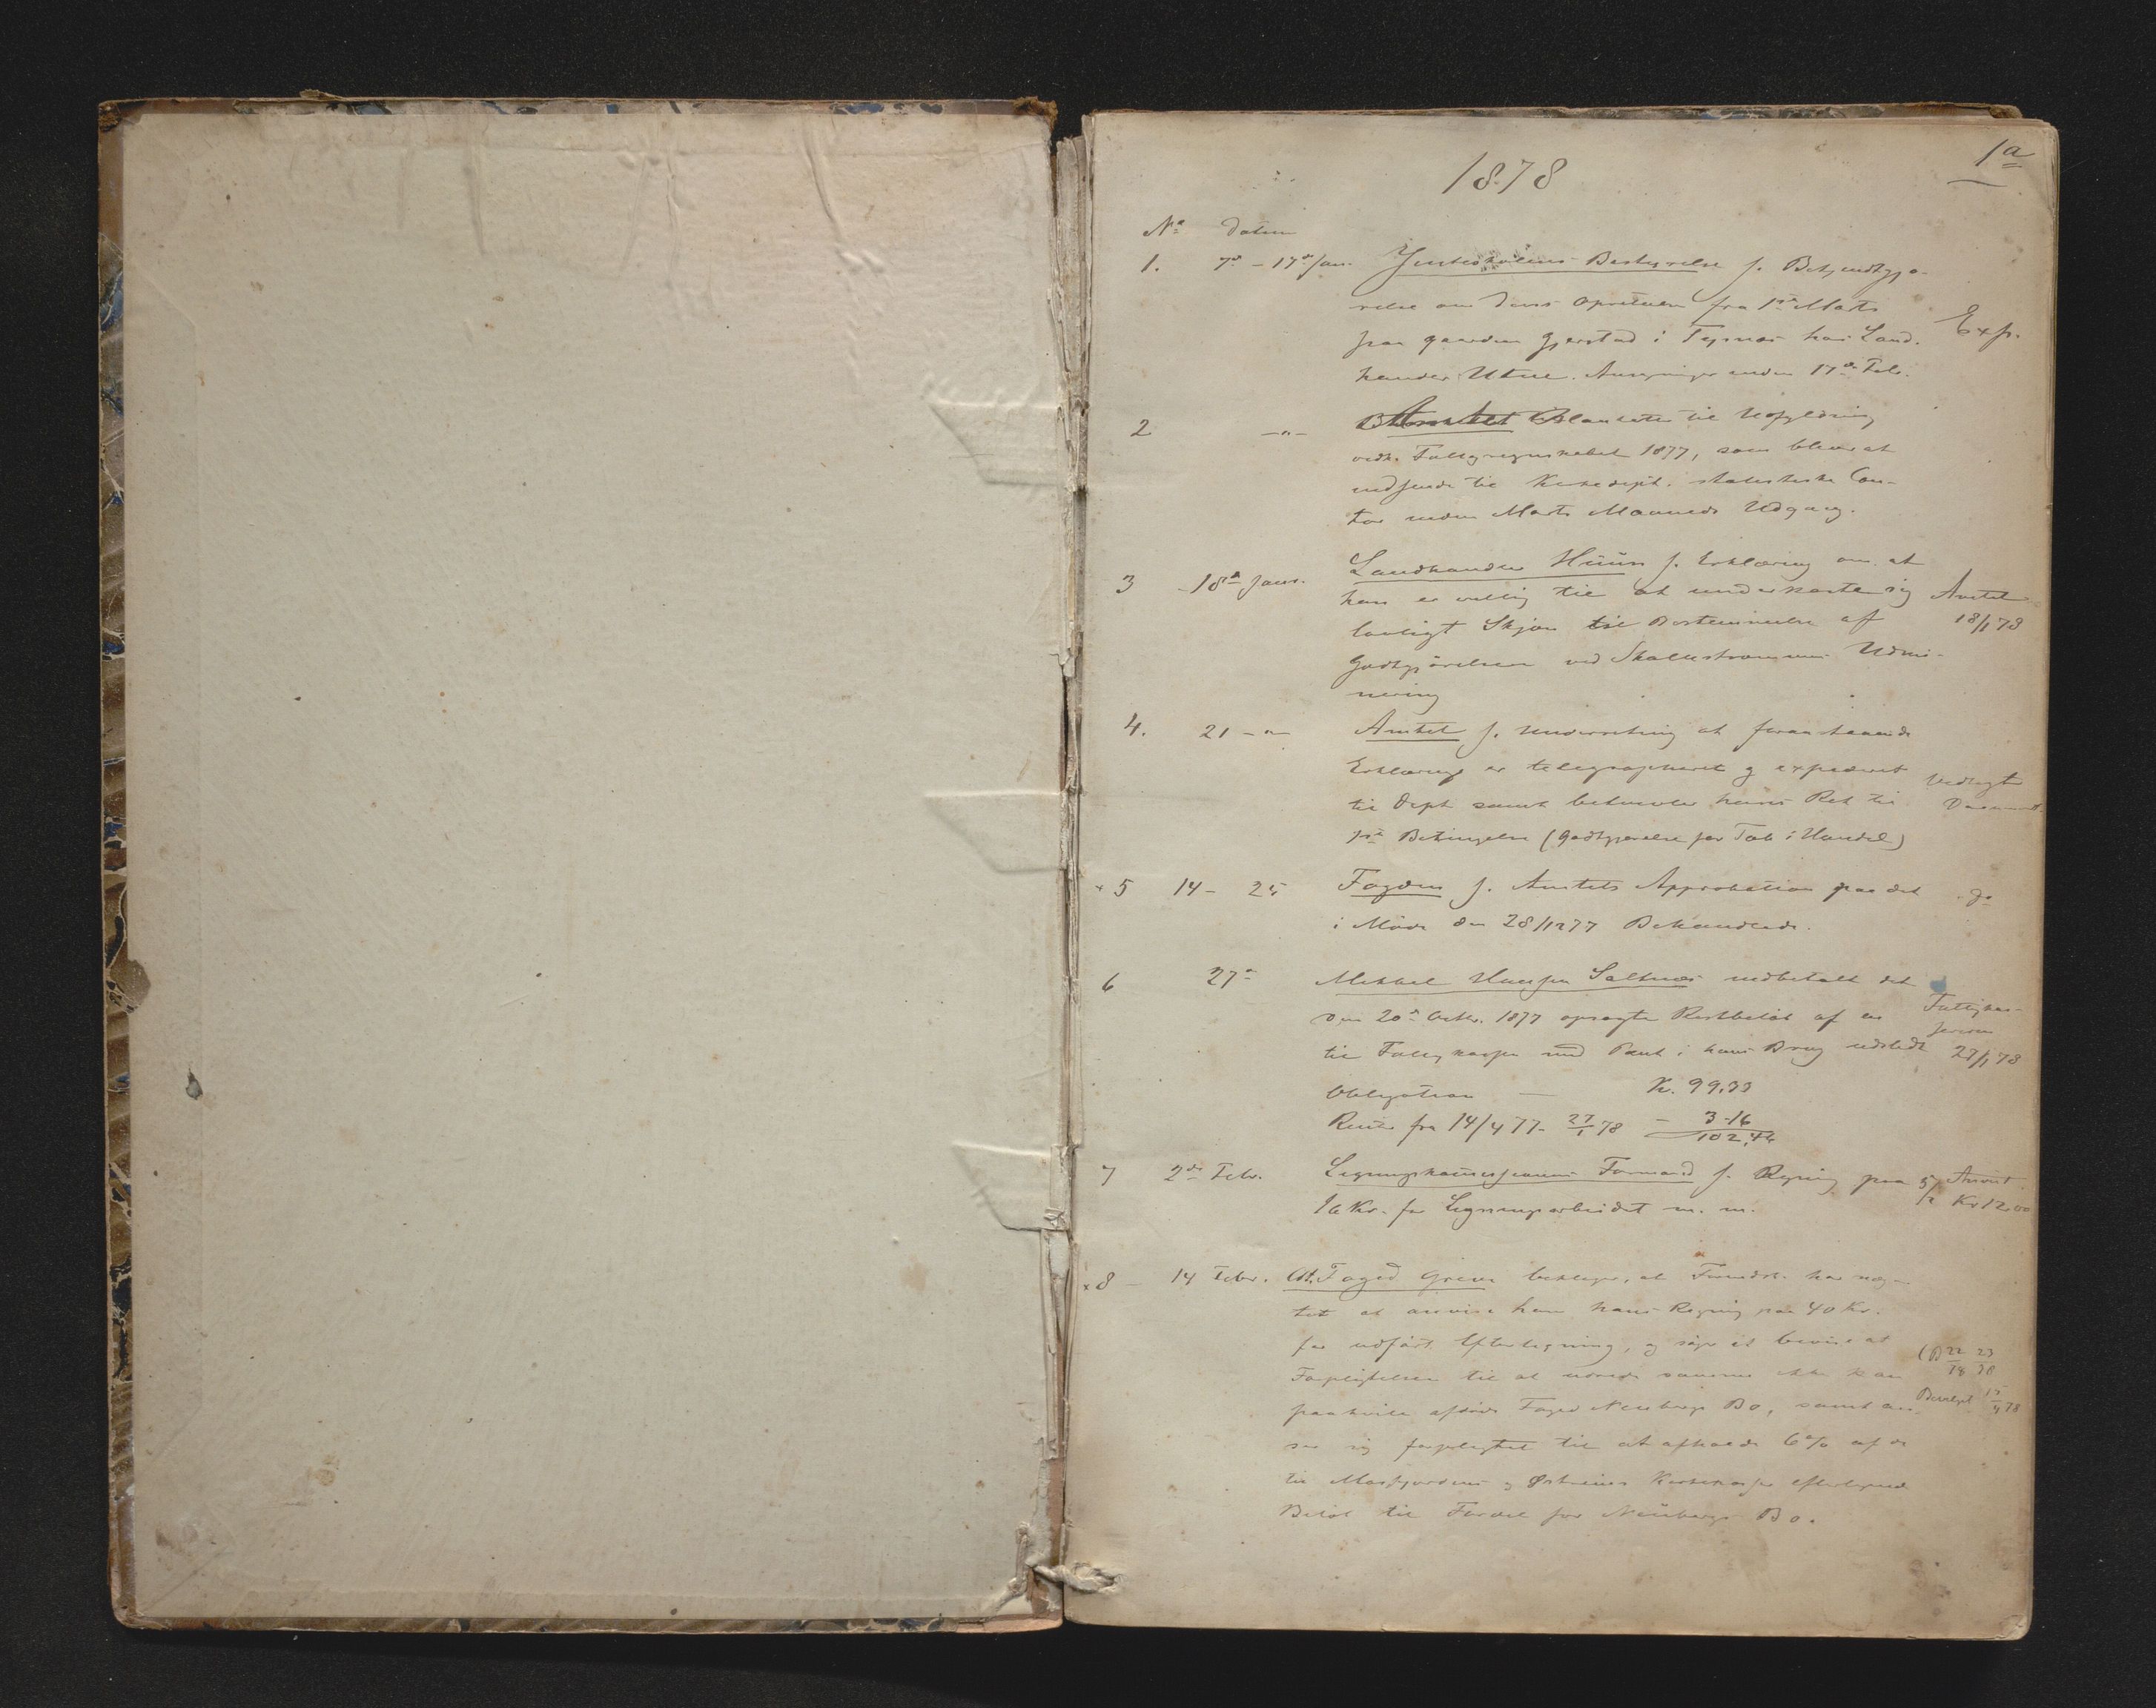 1a
1878
No Datum
1. 7de - 17de Jan. Jenteskolens Bestyrelse f. Bekjendtgjø-
relse om dens Oprettelse fra 1ste Marts
paa gaarden Gjerstad i Tysnæs hos Land-
handler Utne. Ansøgninger inden 17de Feb.
Exp.
2 -"- Amtet Blanketter til Udfyldning
vedk. Fattigregnskabet 1877, som bliver at
indsende til Kirkedept. statistiske Con-
tor inden Marts Maaneds Udgang.
3 18de Janr. Landhandler Huun f. Erklæring om at
han er villig til at underkaste sig
lovligt Skjøn til Bestemmelse af
Godtgjörelsen ved Udmi-
nering
Amtet
18/1 78
4. 21 -"- Amtet f. Underretning at foranstaaende
Erklæring er telegrapheret og expederet
til Dept samt hans Ret til
Betingelse (Godtgjørelse for Tab i Handel)
Vedlagt
5 14 - 25 Fogden f. Amtets Approbation paa det
i Möde den 28/12 77 Behandlede.
do
6 27de Mikkel Hansen Saltnæs indbetalt det
den 20de Octbr. 1877 opsagte Restbelöb af en
til Fattigkassen med Pant i hans Brug udstedt
Obligation — Kr. 99.33
Renter fra 14/4 77 - 27/1 78 - 3-16
Fattigkas-
sereren
27/1 78
7 2den Febr. Ligningskommissionens Formand f. Regning paa
16 Kr. for Ligningsarbeidet m. m.
5/2 Anvist
Kr 12.00
8 - 14 Febr. Cst. Foged Greve beklager, at Formdsk. har næg-
tet at anvise ham hans Regning paa 40 Kr.
for udfört Efterligning, og söger at bevise at
Forpligtelsen til at udrede samme ikke kan
paahvile afdöde Foged Neubergs Bo, samt an-
ser sig forpligtet til at afholde 6% af de
til Masfjordens og Østreims Kirkekasse efterlignede
Belöb til Fordel for Neubergs Bo.